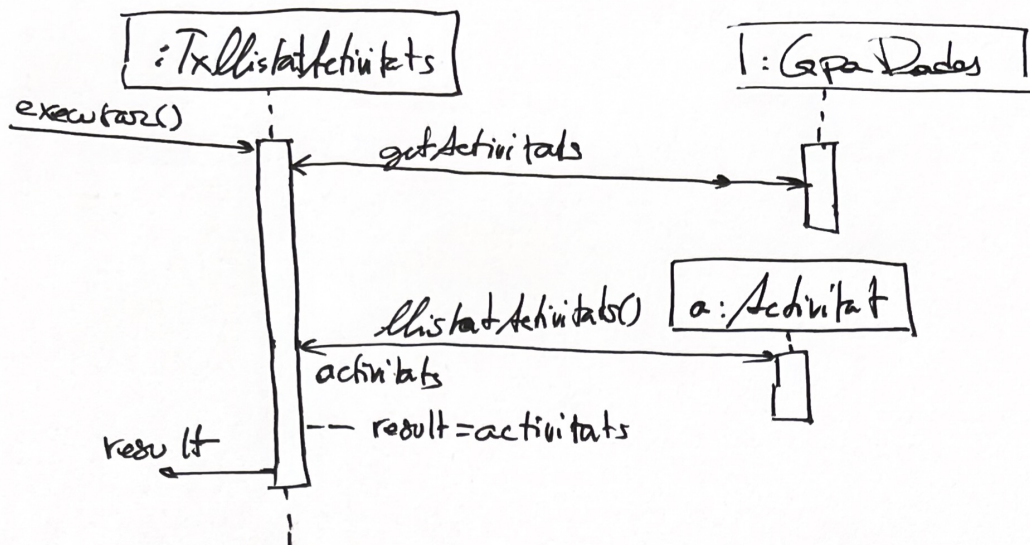 :TxLlistatActivitats
:GpaDades
executar()
getActivitats
a:Activitat
llistatActivitats()
activitats
result=activitats
result